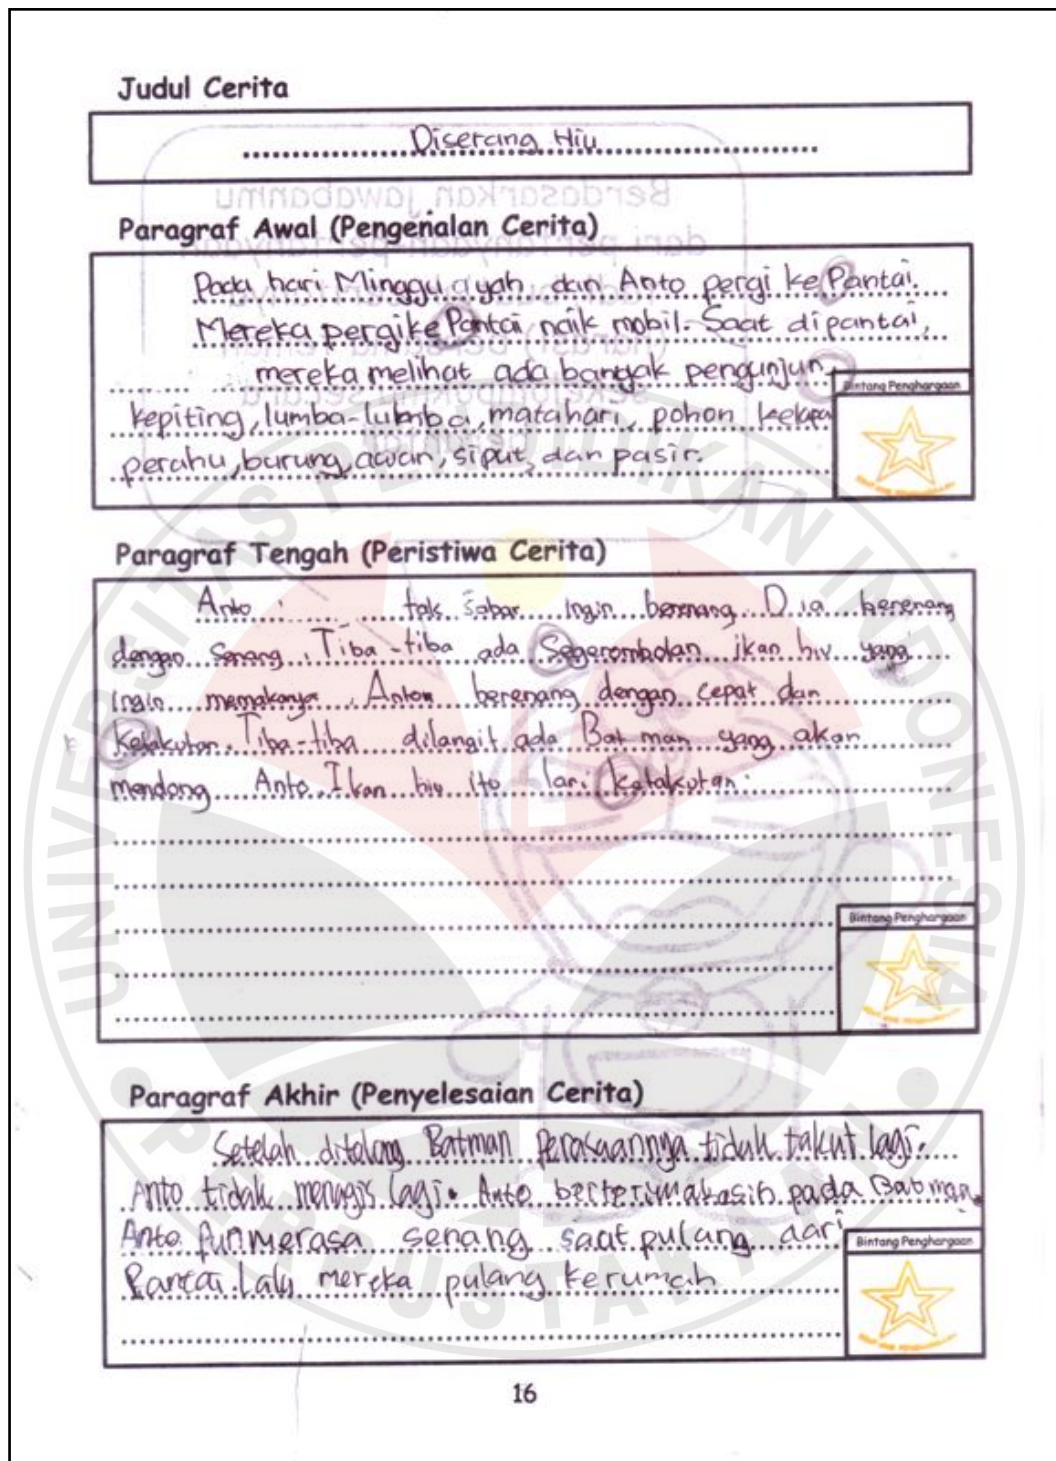 Judul Cerita
Diserang Hiu
Paragraf Awal (Pengenalan Cerita)
Pada hari Minggu ayah dan Anto pergi ke Pantai.
Mereka pergi ke Pantai naik mobil. Saat dipantai,
mereka melihat ada banyak pengunjun
Bintang Penghargaan
kepiting, lumba-lumba, matahari, pohon kelapa
perahu, burung, awan, siput, dan pasir.
Paragraf Tengah (Peristiwa Cerita)
Anto tak sabar ingin berenang. Dia berenang
dengan senang. Tiba-tiba ada Segerombolan ikan hiu yang
ingin memakanya. Anton berenang dengan cepat dan
Ketakutan. Tiba-tiba dilangit ada Bat man yang akan
mendong Anto. Ikan hiu itu lari Ketakutan.
Bintang Penghargaan
Paragraf Akhir (Penyelesaian Cerita)
Setelah ditolong Batman Perasaannya tidak takut lagi.
Anto tidak menagis lagi. Anto berterimakasih pada Batman.
Anto pun merasa senang saat pulang dari
Bintang Penghargaan
Pantai. Lalu mereka pulang kerumah
16
UNIVERSITAS PENDIDIKAN INDONESIA
PERPUSTAKAAN